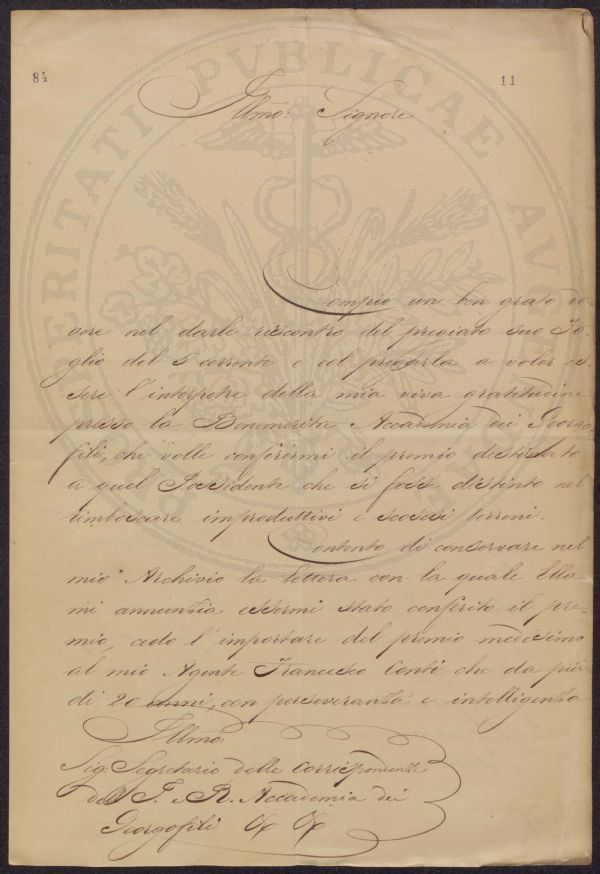 84
11
Illmo: Signore
Compio un ben grato do
vere nel darle riscontro del pregiato suo Fo-
glio del 5 corrente e col pregarla a voler es
sere l'interpetre della mia viva gratitudine
presso la Benemerita Accademia dei Georgo
fili, che volle conferirmi il premio destinato
a quel Possidente che si fosse distinto nel
rimboscare improduttivi e scoscesi terreni.
Contento di conservare nel
mio Archivio la lettera con la quale Ella
mi annunzia essermi stato conferito il pre-
mio, cedo l'importare del premio medesimo
al mio Agente Francesco Conti che da più
di 20 anni, con perseveranza e intelligenza
Illmo:
Sig: Segretario delle Corrispondenze
dell'I. e R. Accademia dei
Georgofili